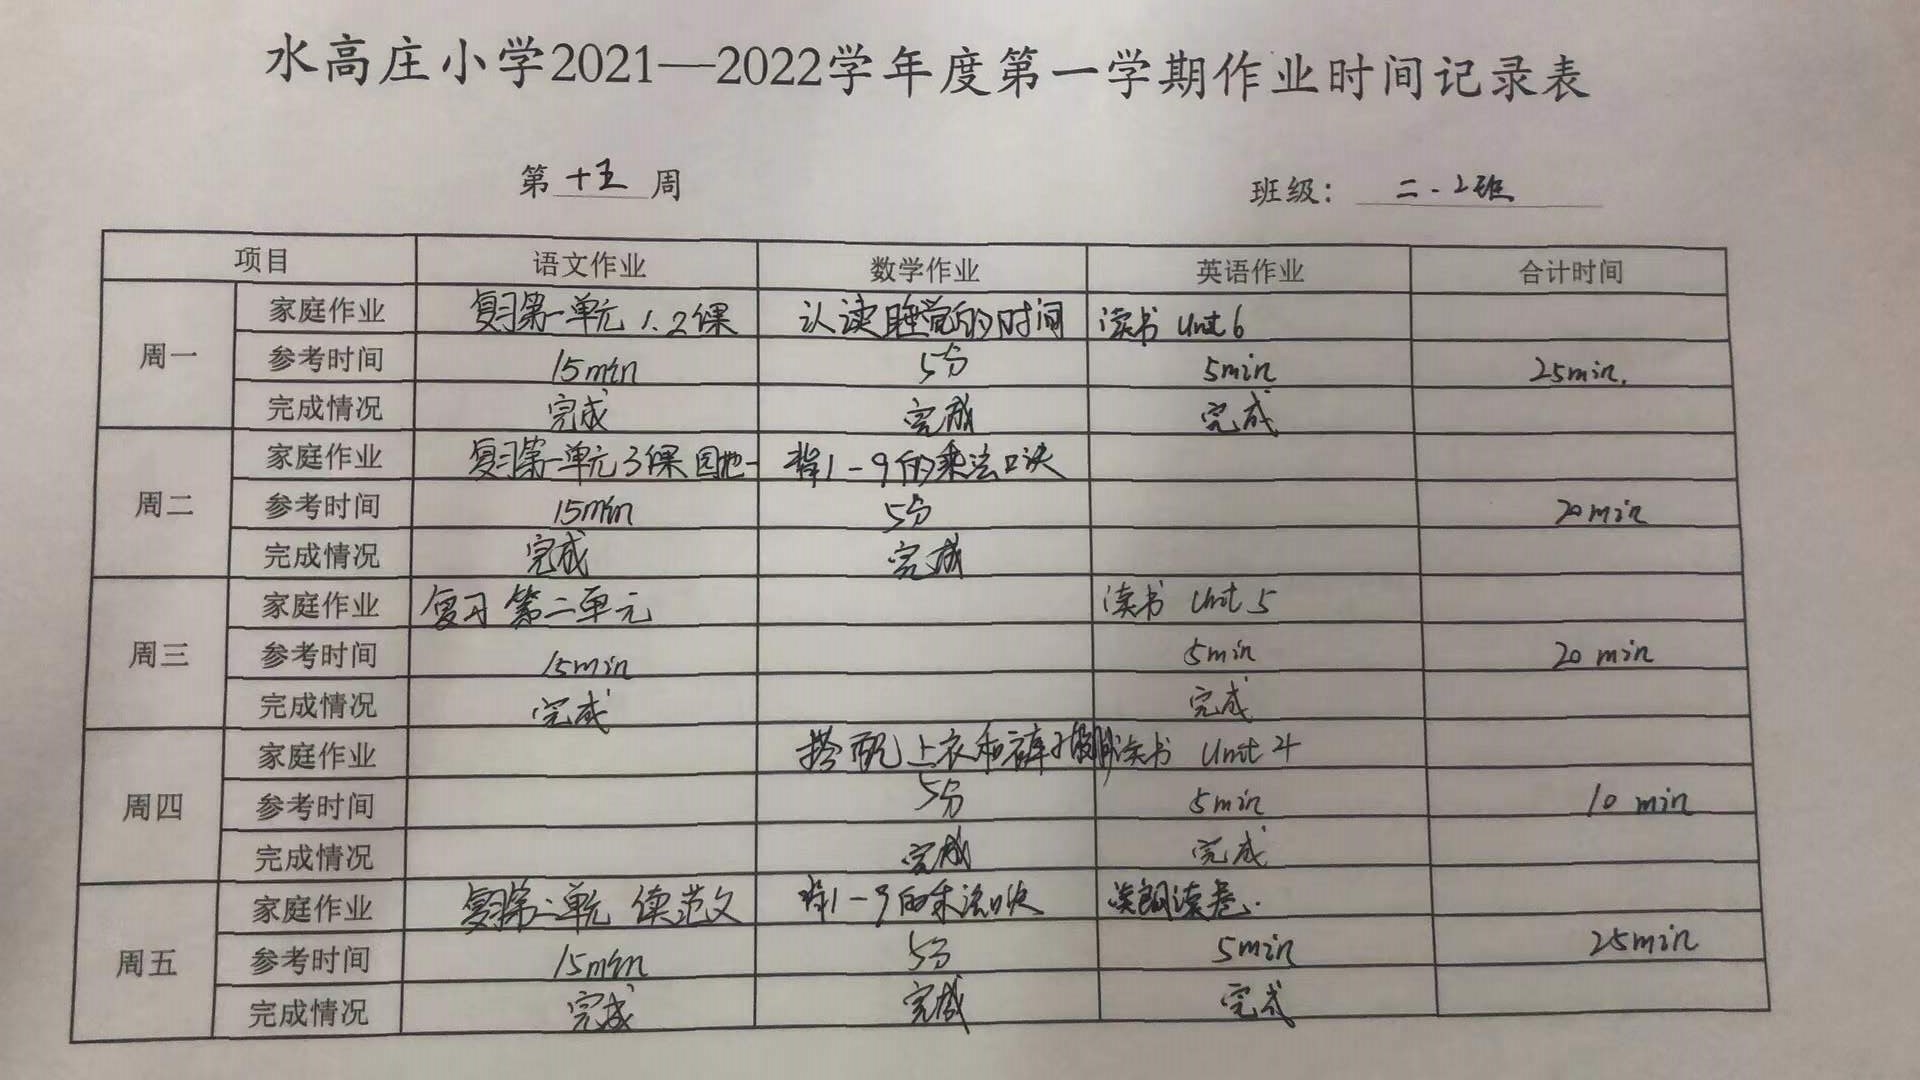 水高庄小学2021—2022学年度第一学期作业时间记录表
第 十五 周 班级： 二.2班
项目 语文作业 数学作业 英语作业 合计时间
周一
家庭作业 复习第一单元 1.2课 认读睡觉的时间 读书 Unit 6
参考时间 15min 5分 5min 25min.
完成情况 完成 完成 完成
周二
家庭作业 复习第一单元3课 园地一 背1-9的乘法口诀
参考时间 15min 5分 20min
完成情况 完成 完成
周三
家庭作业 复习 第二单元 读书 Unit 5
参考时间 15min 5min 20 min
完成情况 完成 完成
周四
家庭作业 搭配上衣和裤子 读书 Unit 4
参考时间 5分 5min 10 min
完成情况 完成 完成
周五
家庭作业 复习第二单元 读范文 背1-9的乘法口诀 读朗读卷.
参考时间 15min 5分 5min 25min
完成情况 完成 完成 完成